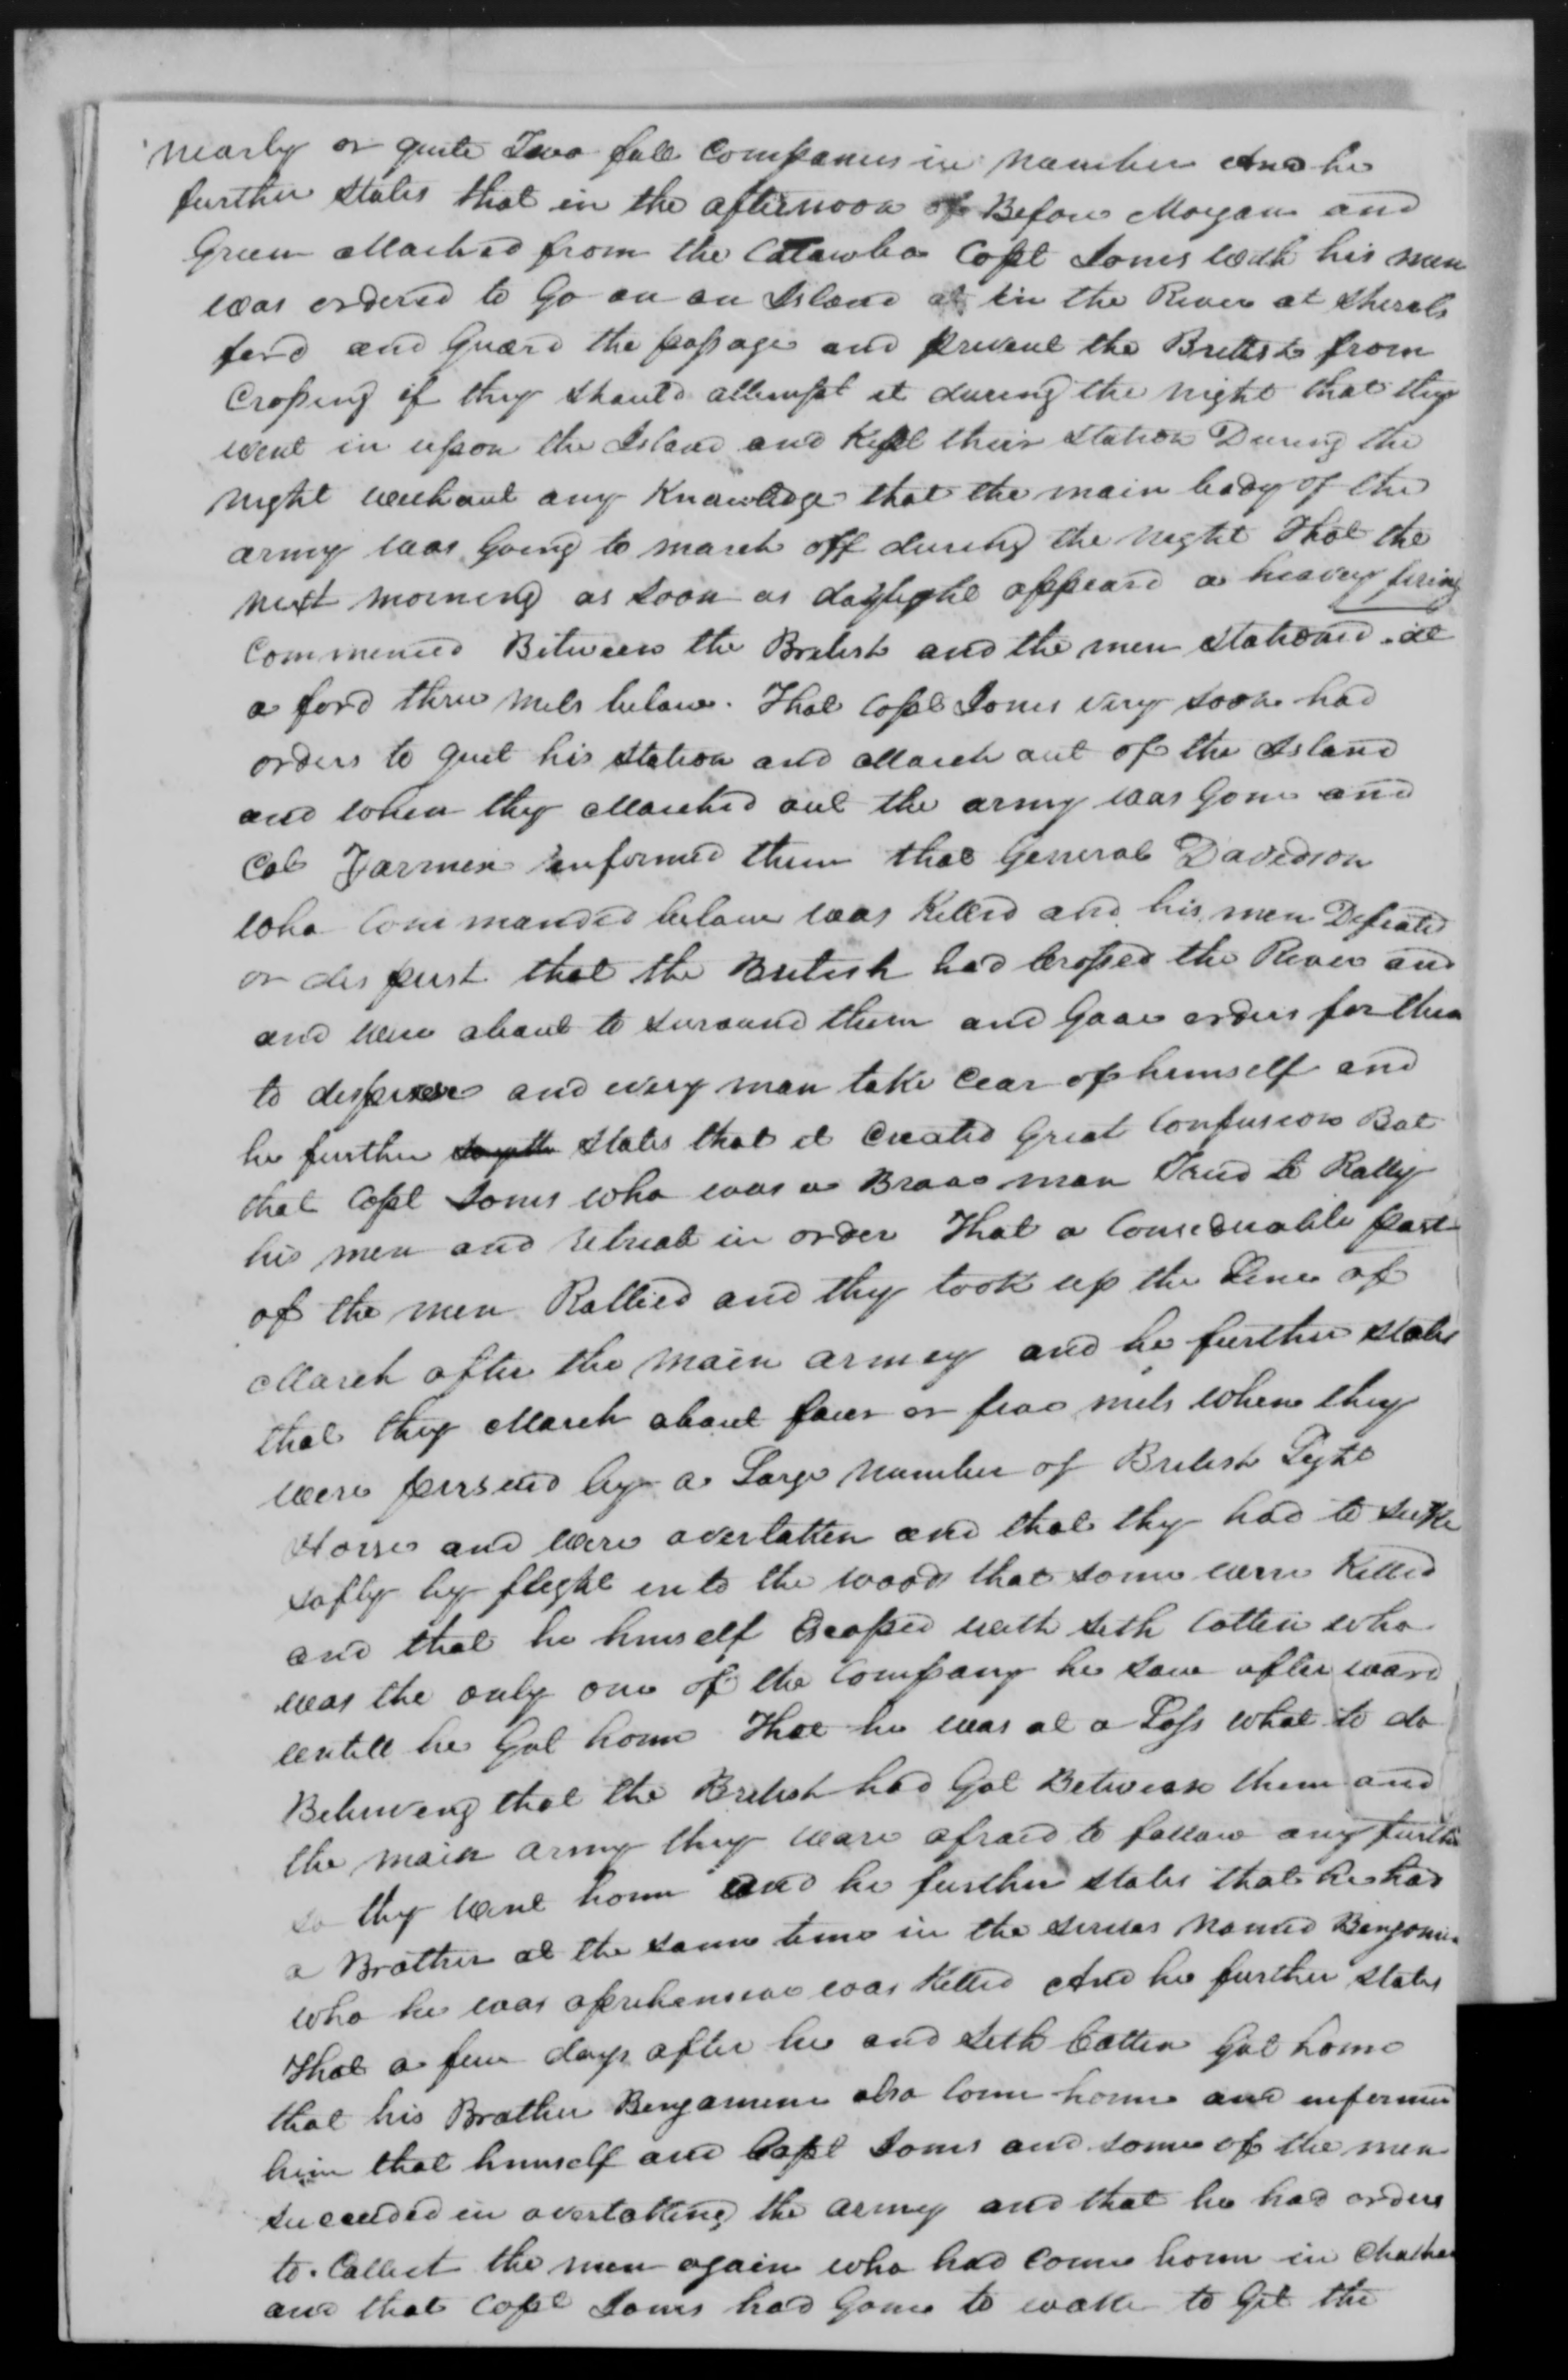 nearly or quite Two full Companies in Number And he
further States that in the afternoon of Before Morgan and
Green Marched from the Catawba Capt Jones with his men
was ordered to Go on an Island in the River at Sherals
ford and Guard the passage and prevent the British from
Crossing if they should attempt it during the night that they
went in upon the Island and Kept their station During the
night without any Knowledge that the main body of the
army was Going to march off during the night That the
next morning as soon as daylight appeard a heavey firing
Commenced Between the British and the men stationed at
a ford three mils below. That Capt Jones very soon had
orders to quit his station and March out of the Island
and when they Marched out the army was Gone and
Col Farmer informed them that General Davidson
who Commanded below was Killed and his men Defeated
or dispurst that the British had Crossed the River and
and were about to suround them and Gave orders for them
to disperse and every man take Cear of himself and
he further States that it Created Great Confusion But
that Capt Jones who was a Brave man Tried to Rally
his men and retreat in order That a Considerable part
of the men Rallied and they took up the Line of
March after the main army and he further states
that they March about four or five mils when they
were persued by a Large number of British Light
Horse and were overtatten and that they had to seeke
safty by flight into the woods that some were Killed
and that he himself Escaped with Seth Cotten who
was the only one of the Company he saw after ward
untill he Got home That he was at a Loss what to do
Believeing that the British had Got Between them and
the main army they ware afraid to follow any further
so they went home and he further states that he had
a Brother at the same time in the servis Named Benjamin
who he was aprehensive was Killed And he further States
That a few days after he and Seth Cotten Got home
that his Brother Benjamine also Come home and informed
him that himself and Capt Jones and some of the men
suceeded in overtatting the army and that he had orders
to Collect the men again who had Come home in Chatham
and that Capt Jones had Gone to wake to Git the